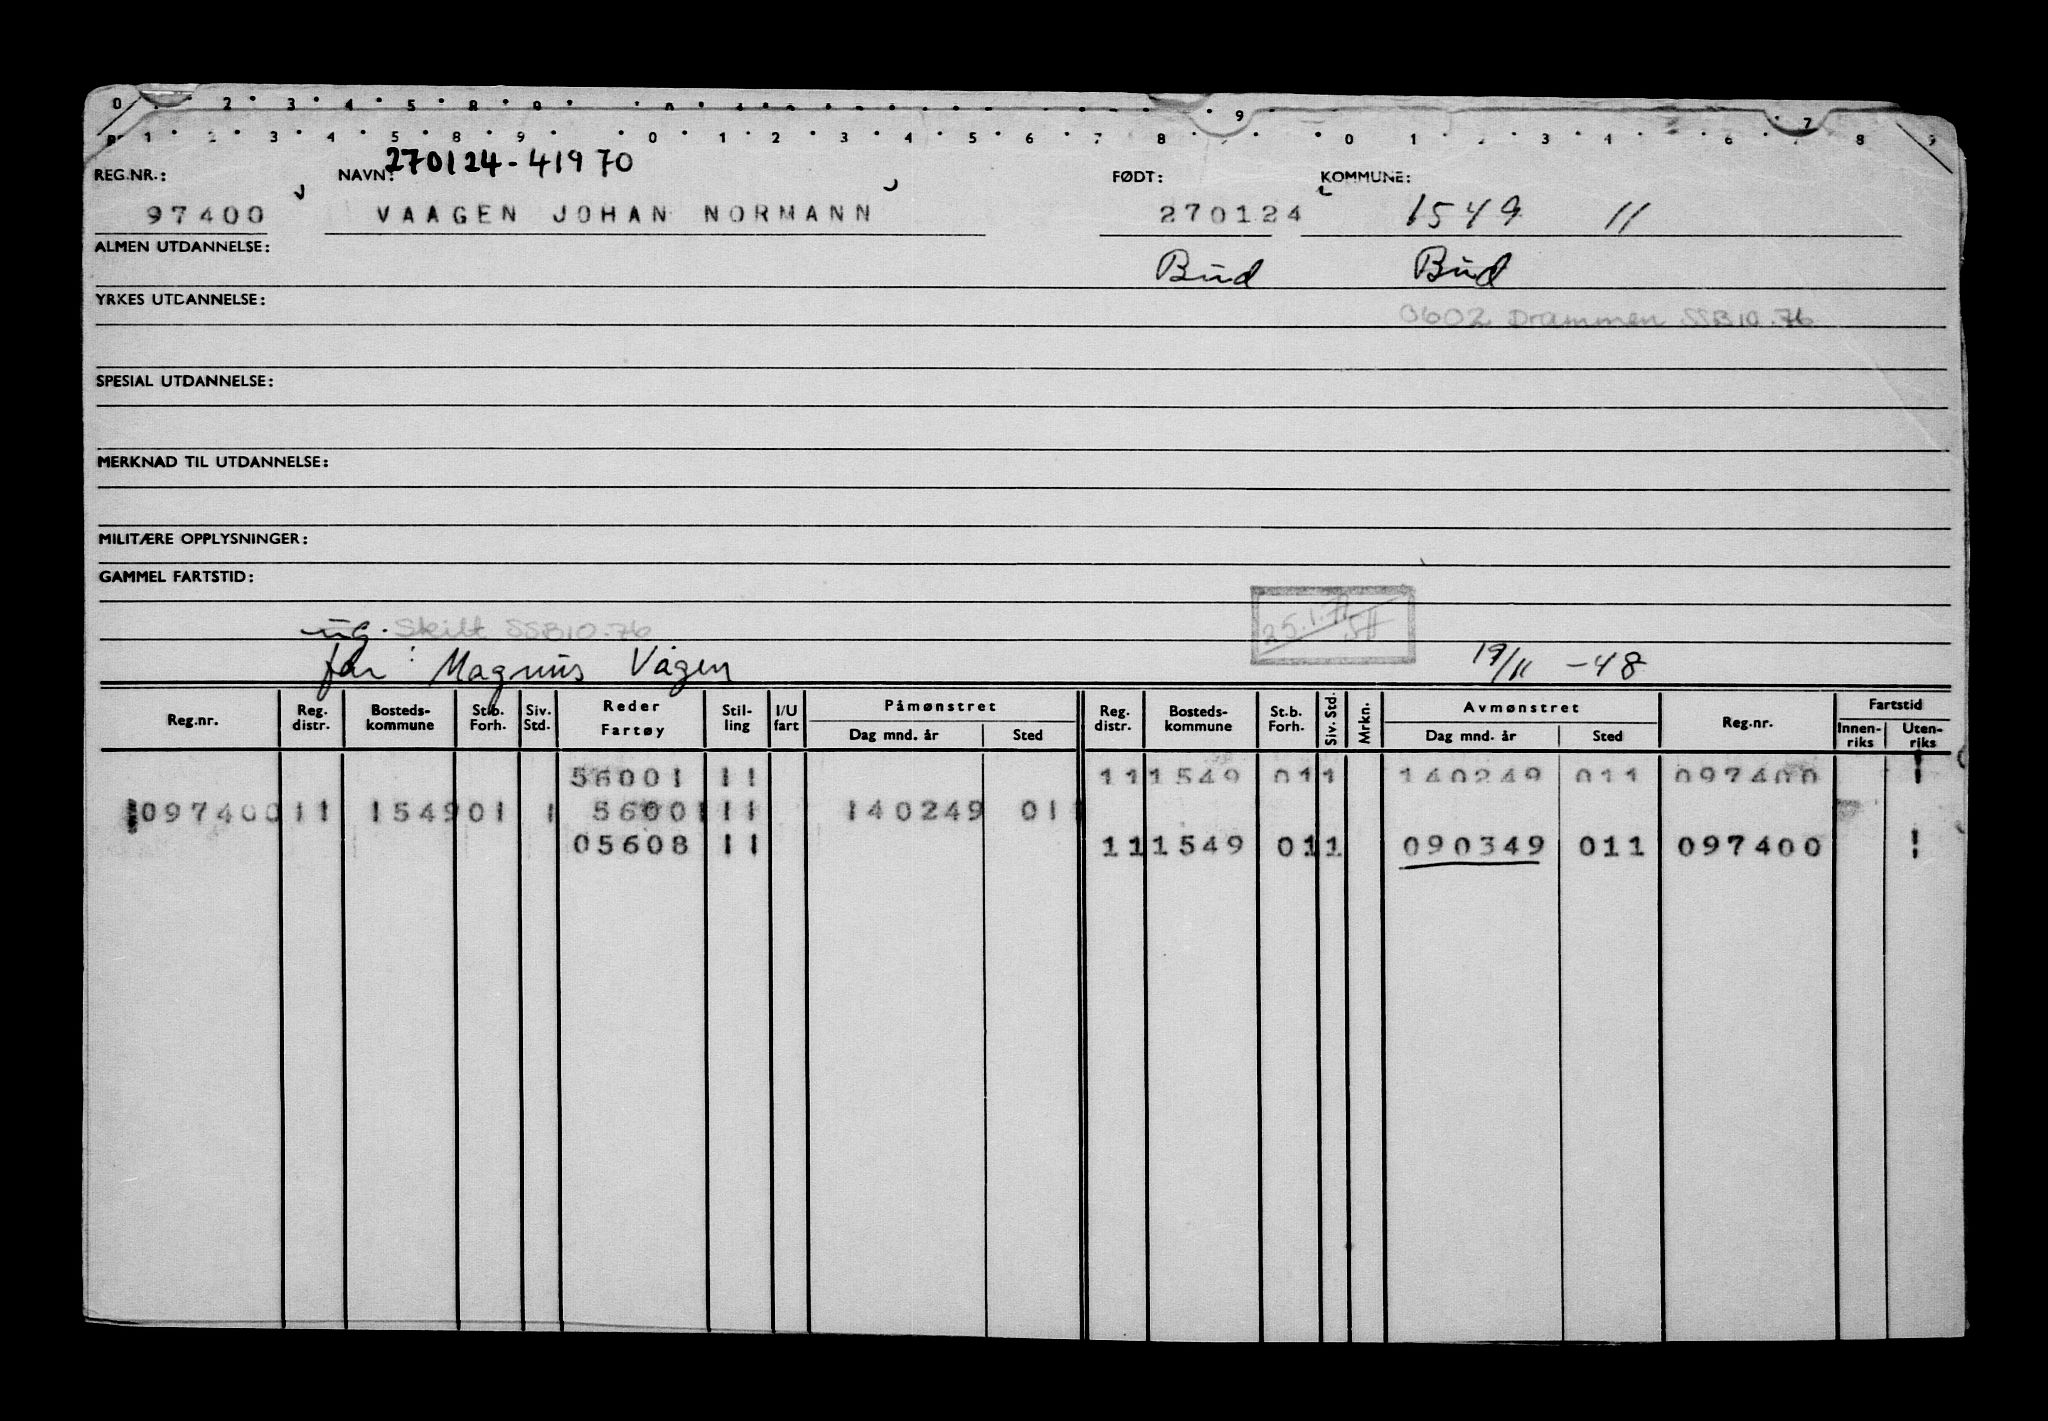 0 2 3 4 5 8 9 9 7
1 2 3 4 5 8 9 0 1 2 3 4 5 6 7 8 0 1 3 4 6 8 9
270124-41970
REG.NR.: NAVN: FØDT: KOMMUNE:
97400 VAAGEN JOHAN NORMANN 270124 1549 11
ALMEN UTDANNELSE: Bud Bud
YRKES UTDANNELSE:
0602 Drammen SSB10.76
SPESIAL UTDANNELSE:
MERKNAD TIL UTDANNELSE:
MILITÆRE OPPLYSNINGER:
GAMMEL FARTSTID:
ug. Skilt SSB10.76
far: Magnus Vågen 19/11 -48
Reg.nr. Reg. distr. Bosteds-kommune St.b. Forh. Siv. Std. Reder Fartøy Stil-ling I/U fart Påmønstret Dag mnd. år Sted Reg. distr. Bosteds-kommune St.b. Forh. Siv. Std. Mrkn. Avmønstret Dag mnd. år Sted Reg.nr. Fartstid Innen-riks Uten-riks
56001 11 11 1549 01 1 140249 011 097400 1
097400 11 1549 01 1 56001 11 140249 011
05608 11 11 1549 01 1 090349 011 097400 1